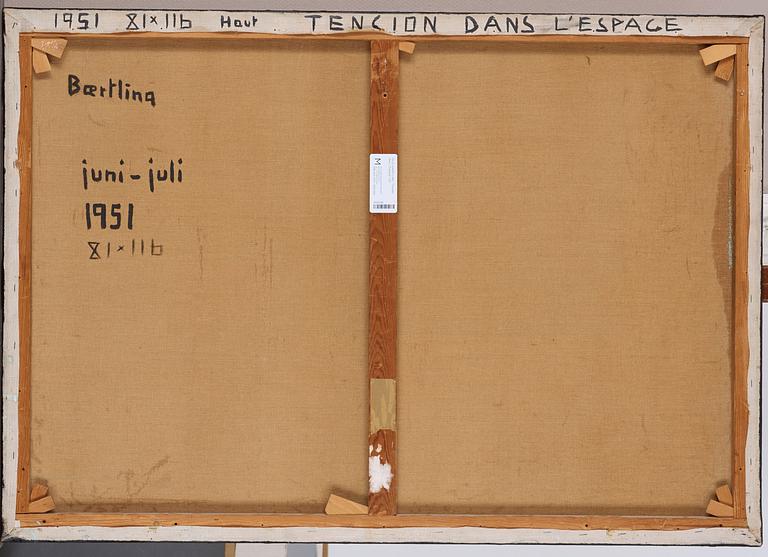 1951 81×116 Haut TENCION DANS L'ESPACE
Bærtling
juni-juli
1951
81×116
M